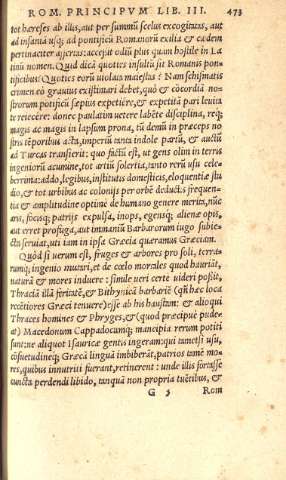 ROM. PRINCIPVM LIB. III. 473
tot hæreses ab illis, aut per summũ scelus excogitatas, aut
ad insaniã usq; ad pontificiũ Romanorũ exilia & cædem
pertinaciter assertas: accessit odiũ plus quam hostile in La
tinũ nomen. Quid dicã quoties insultũ sit Romanis pon-
tificibus? Quoties eorũ uiolata maiestas? Nam schismatis
crimen eò grauius existimari debet, quò & cõcordiã no-
strorum pontificũ sæpius expetiere, & expetitã pari leuita
te reiecere: donec paulatim uetere labẽte disciplina, req;
magis ac magis in lapsum prona, tũ demũ in præceps no
stris tẽporibus acta, imperiũ tanta indole partũ, & auctũ
ad Turcas transierit: quo factũ est, ut gens olim in terris
ingeniorũ acumine, tot artiũ solertia, tanto rerũ usu cele-
berrima: addo, legibus, institutis domesticis, eloquentiæ stu
dio, & tot urbibus ac colonijs per orbẽ deductis frequen-
tia & amplitudine optimè de humano genere merita, nũc
aris, focisq; patrijs expulsa, inops, egensq; alienæ opis,
aut erret profuga, aut immaniũ Barbarorum iugo subie-
cta seruiat, uti iam in ipsa Græcia quæramus Græciam.
Quòd si uerum est, fruges & arbores pro soli, terra-
rumq; ingenio mutari, et de cœlo morales quod hauriãt,
naturã & mores induere: simile ueri certe uideri possit,
Thraciã illã feritatẽ, & Bithynicã barbariẽ (quã hæc loca
recẽtiores Græci tenuere) esse ab his haustam: & alioqui
Thraces homines & Phryges, & (quod præcipuè pudẽ-
at) Macedonum Cappadocumq; mancipia rerum potiti
sunt: ne aliquot Isauricæ gentis ingeram: qui tametsi usũ,
cõsuetudinẽq; Græcã linguã imbiberãt, patrios tamẽ mo-
res, quibus innutriti fuerant, retinerent: unde illis fortasse
cuncta perdendi libido, tanquã non propria tuẽtibus, &
G 3 Rom